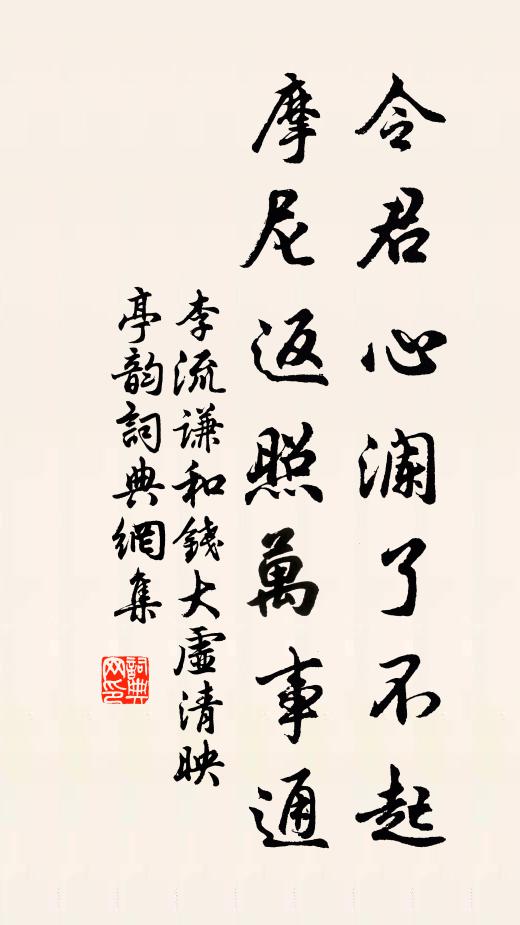 令君心澜了不起
摩尼返照萬事通
李流谦和錢大虛清映
亭韵詞典網集
詞典网印